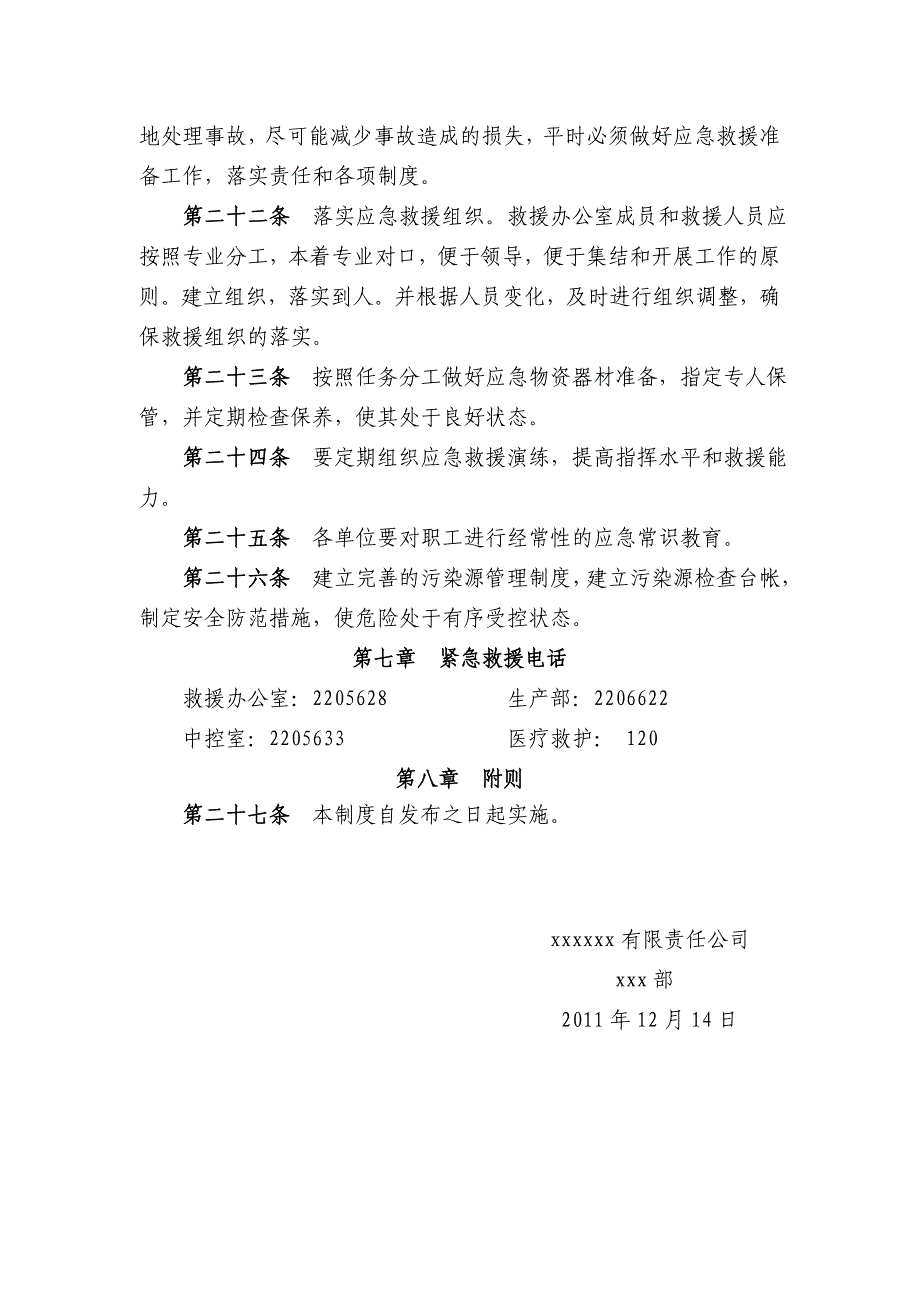 地处理事故，尽可能减少事故造成的损失，平时必须做好应急救援准
备工作，落实责任和各项制度。
第二十二条　落实应急救援组织。救援办公室成员和救援人员应
按照专业分工，本着专业对口，便于领导，便于集结和开展工作的原
则。建立组织，落实到人。并根据人员变化，及时进行组织调整，确
保救援组织的落实。
第二十三条　按照任务分工做好应急物资器材准备，指定专人保
管，并定期检查保养，使其处于良好状态。
第二十四条　要定期组织应急救援演练，提高指挥水平和救援能
力。
第二十五条　各单位要对职工进行经常性的应急常识教育。
第二十六条　建立完善的污染源管理制度，建立污染源检查台帐，
制定安全防范措施，使危险处于有序受控状态。
第七章　紧急救援电话
救援办公室：2205628　生产部：2206622
中控室：2205633　医疗救护： 120
第八章　附则
第二十七条　本制度自发布之日起实施。
xxxxxx 有限责任公司
xxx 部
2011 年 12 月 14 日